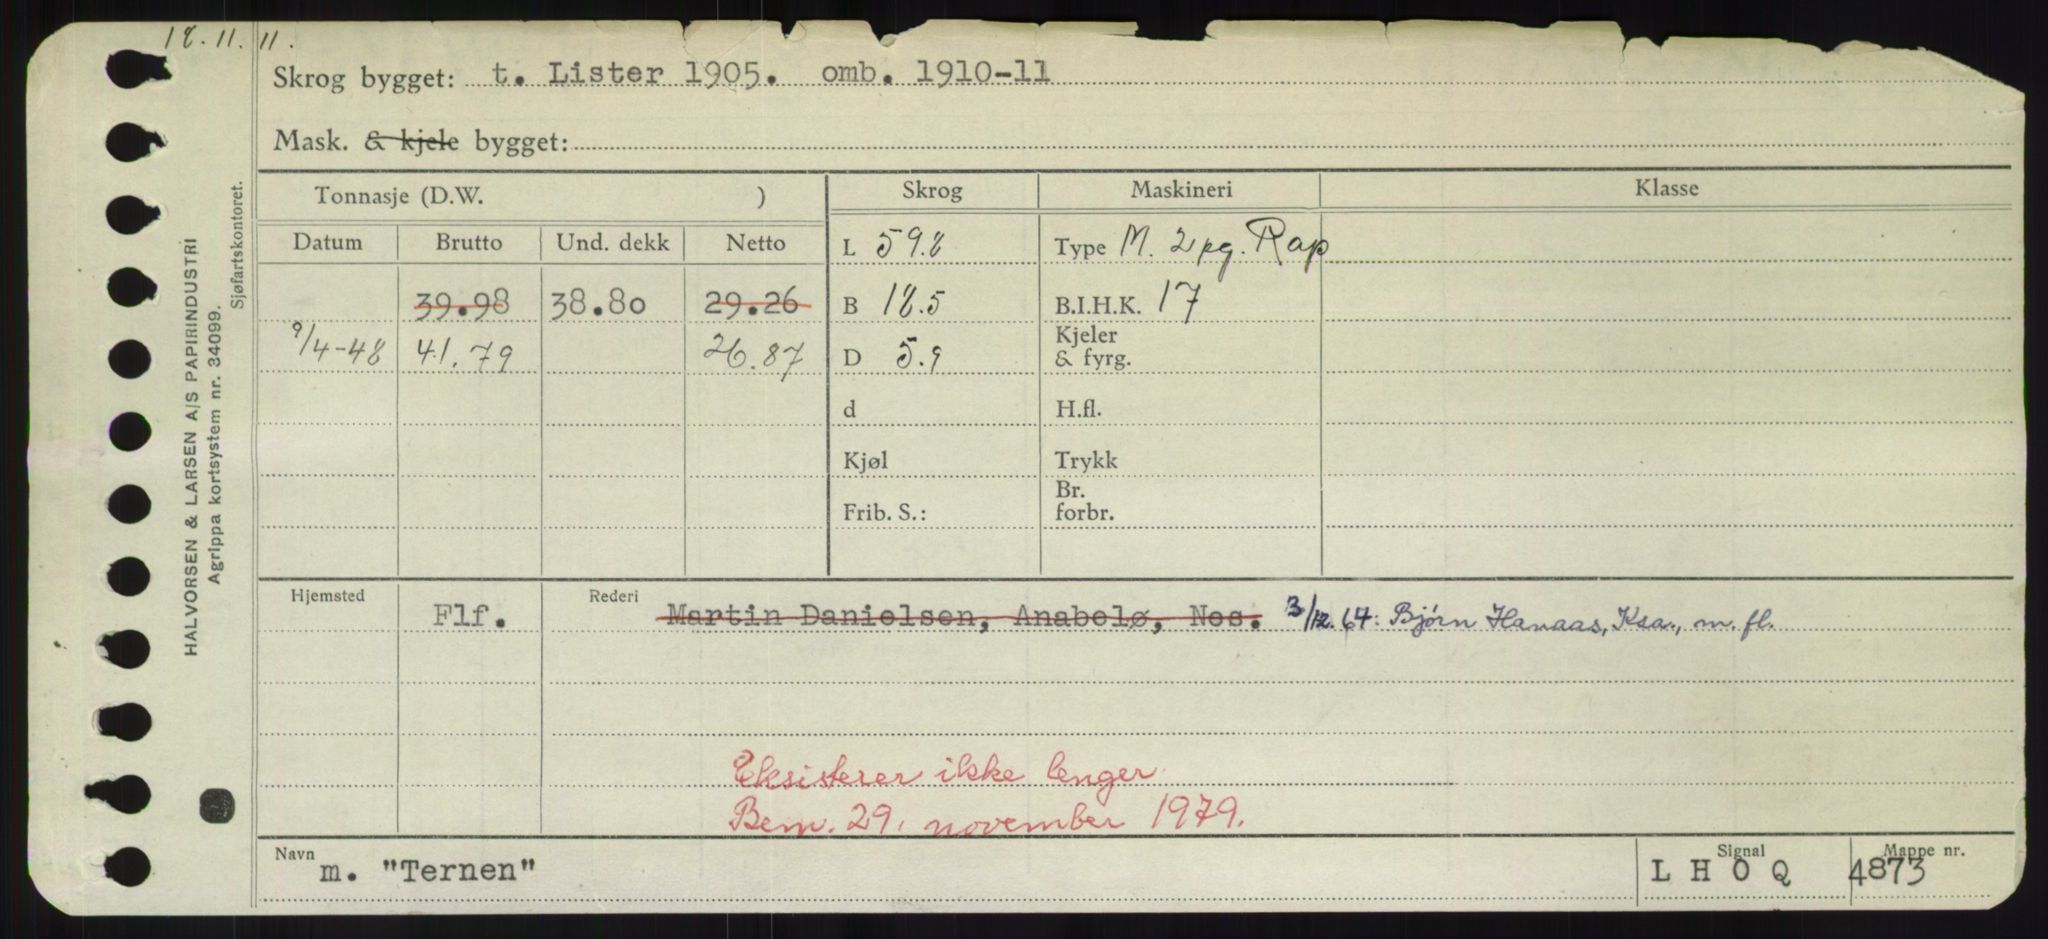 18.11.11.
Skrog bygget: t. Lister 1905. omb. 1910-11
Mask. & kjele bygget:
Tonnasje (D.W. ) Skrog Maskineri Klasse
Datum Brutto Und. dekk Netto L 59.8 Type M. 2 pg. Rap
39.98 38.80 29.26 B 18.5 B.I.H.K. 17
9/4-48 41.79 26.87 D 5.9 Kjeler & fyrg.
d H.fl.
Kjøl Trykk
Frib. S.: Br. forbr.
Hjemsted Flf. Rederi Martin Danielsen, Anabelø, Nes. 3/12.64: Bjørn Hanaas, Ksa., m. fl.
Eksisterer ikke lenger
Bem. 29. november 1979.
Navn m. "Ternen" Signal L H O Q Mappe nr. 4873
HALVORSEN & LARSEN A/S PAPIRINDUSTRI
Agrippa kortsystem nr. 34099.
Sjøfartskontoret.